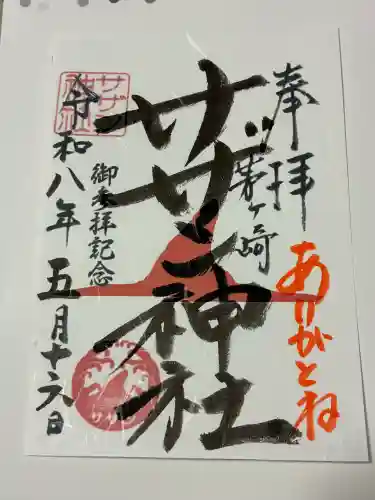 奉拝
ありがとね
茅ヶ崎
サザン神社
御参拝記念
令和八年五月十六日
サザン
神社